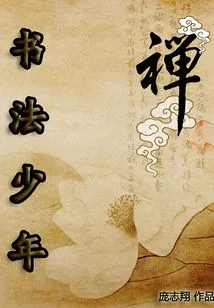 禅
书法少年
庞志翔 作品